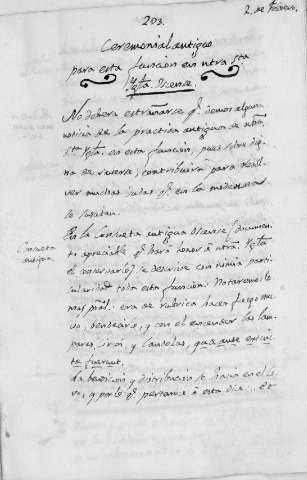 2. de Febrero.
203.
Ceremonial antiguo
para esta funcion en ntra Sta
Ygla. Oscense.
No deberá estrañarse q.e demos alguna
noticia de la practica antigua de ntra.
Sta Ygla. en esta funcion, pues sobre dig-
na de saverse, contribuirá para resol-
ver muchas dudas q.e en la moderna
se suscitan.
Consueta
antigua.
En la Consueta antigua Oscense (documen-
to apreciable q.e hará honor á ntra. Ygla.
el conservarlo) se describe con nimia parti-
cularidad toda esta funcion. Notaremos lo
mas pral. era de rubrica hacer fuego nue-
vo, bendecirlo, y con el encender las lam-
paras, cirios, y candelas, quæ ante extinc-
tæ fuerunt.
La bendicion y distribucion se hacia en el
y por lo q.e pertenece á esta dice. Et